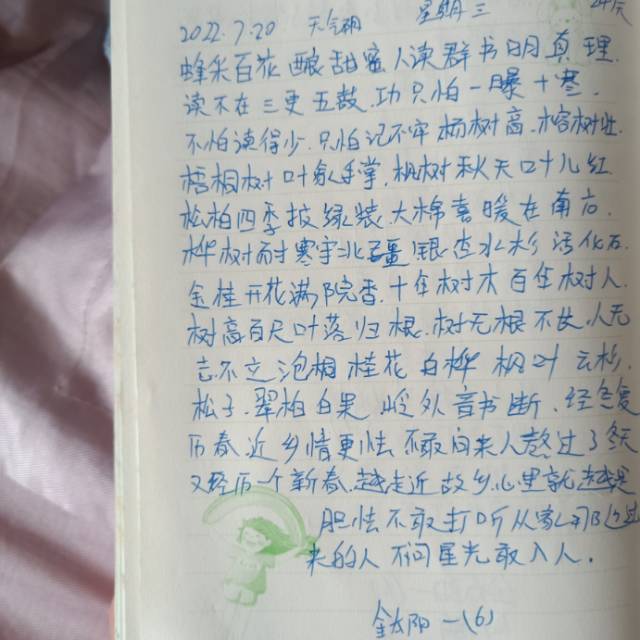 2022.7.20 天气晴 星期三
蜂采百花酿甜蜜人读群书明真理.
读不在三更五鼓.功只怕一曝十寒.
不怕读得少.只怕记不牢 杨树高.榕树壮.
梧桐树叶像手掌.枫树秋天叶儿红
松柏四季披绿装.大棉喜暖在南方.
桦树耐寒守北疆 银杏水杉活化石.
金桂开花满院香.十年树木百年树人.
树高百尺叶落归根.树无根不长.人无
志不立 泡桐 桂花 白桦 枫叶 云杉.
松子.翠柏 白果 岭外音书断.经冬复
历春 近乡情更怯 不敢问来人熬过了冬天
又经历一个新春.越走近故乡.心里就越是
胆怯不敢打听从家那边
来的人 不问星光敢入人.